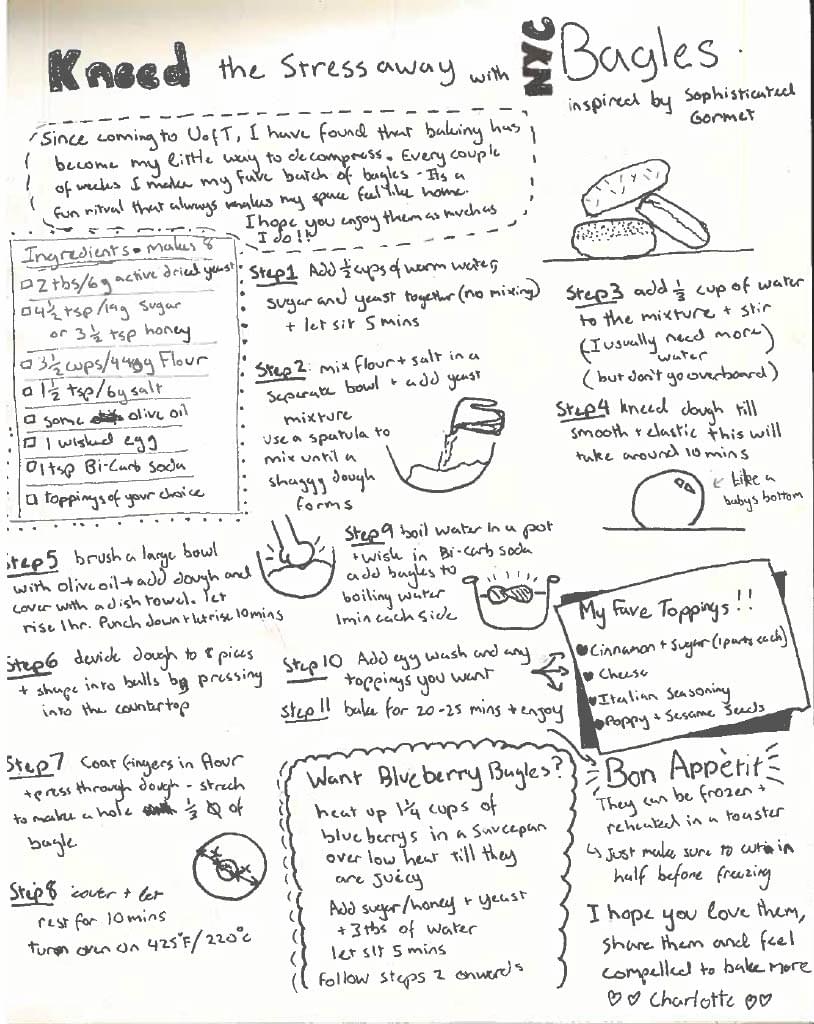 Kneed the Stress away with NYC Bagles.
inspired by Sophisticated
Gormet
Since coming to UofT, I have found that baking has
become my little way to decompress. Every couple
of weeks I make my fave batch of bagles - Its a
fun ritual that always makes my space feel like home.
I hope you enjoy them as much as
I do!!
Ingredients - makes 8
2 tbs/6g active dried yeast
4 1/2 tsp/19g sugar
or 3 1/2 tsp honey
3 1/2 cups/449g Flour
1 1/2 tsp/6g salt
some olive oil
1 wisked egg
1 tsp Bi-Carb Soda
toppings of your choice
Step 1 Add 1/2 cups of warm water,
sugar and yeast together (no mixing)
+ let sit 5 mins
Step 2: mix flour + salt in a
seperate bowl + add yeast
mixture
use a spatula to
mix until a
shaggy dough
forms
Step 3 add 1/3 cup of water
to the mixture + stir
(I usually need more)
water
(but don't go overboard)
Step 4 kneed dough till
smooth + elastic this will
take around 10 mins
Like a
babys bottom
Step 5 brush a large bowl
with olive oil + add dough and
cover with a dish towel. let
rise 1hr. Punch down + let rise 10 mins
Step 6 devide dough to 8 pices
+ shape into balls by pressing
into the countertop
Step 7 Coat fingers in flour
+ press through dough - strech
to make a hole 1/3 of
bagle
Step 8 cover + let
rest for 10 mins
turn oven on 425°F/220°c
Step 9 boil water in a pot
+ wisk in Bi-carb soda
add bagles to
boiling water
1 min each side
Step 10 Add egg wash and any
toppings you want
Step 11 bake for 20-25 mins + enjoy
My Fave Toppings!!
Cinnamon + Sugar (1 parts each)
Cheese
Italian Seasoning
Poppy + Sesame Seeds
Want Blueberry Bagles?
heat up 1 1/4 cups of
blueberrys in a Saucepan
over low heat till they
are juicy
Add sugar/honey + yeast
+ 3 tbs of water
let sit 5 mins
Follow steps 2 onwards
Bon Appètit
They can be frozen +
reheated in a toaster
↳ Just make sure to cut in
half before freezing
I hope you love them,
share them and feel
compelled to bake more
♡♡ Charlotte ♡♡